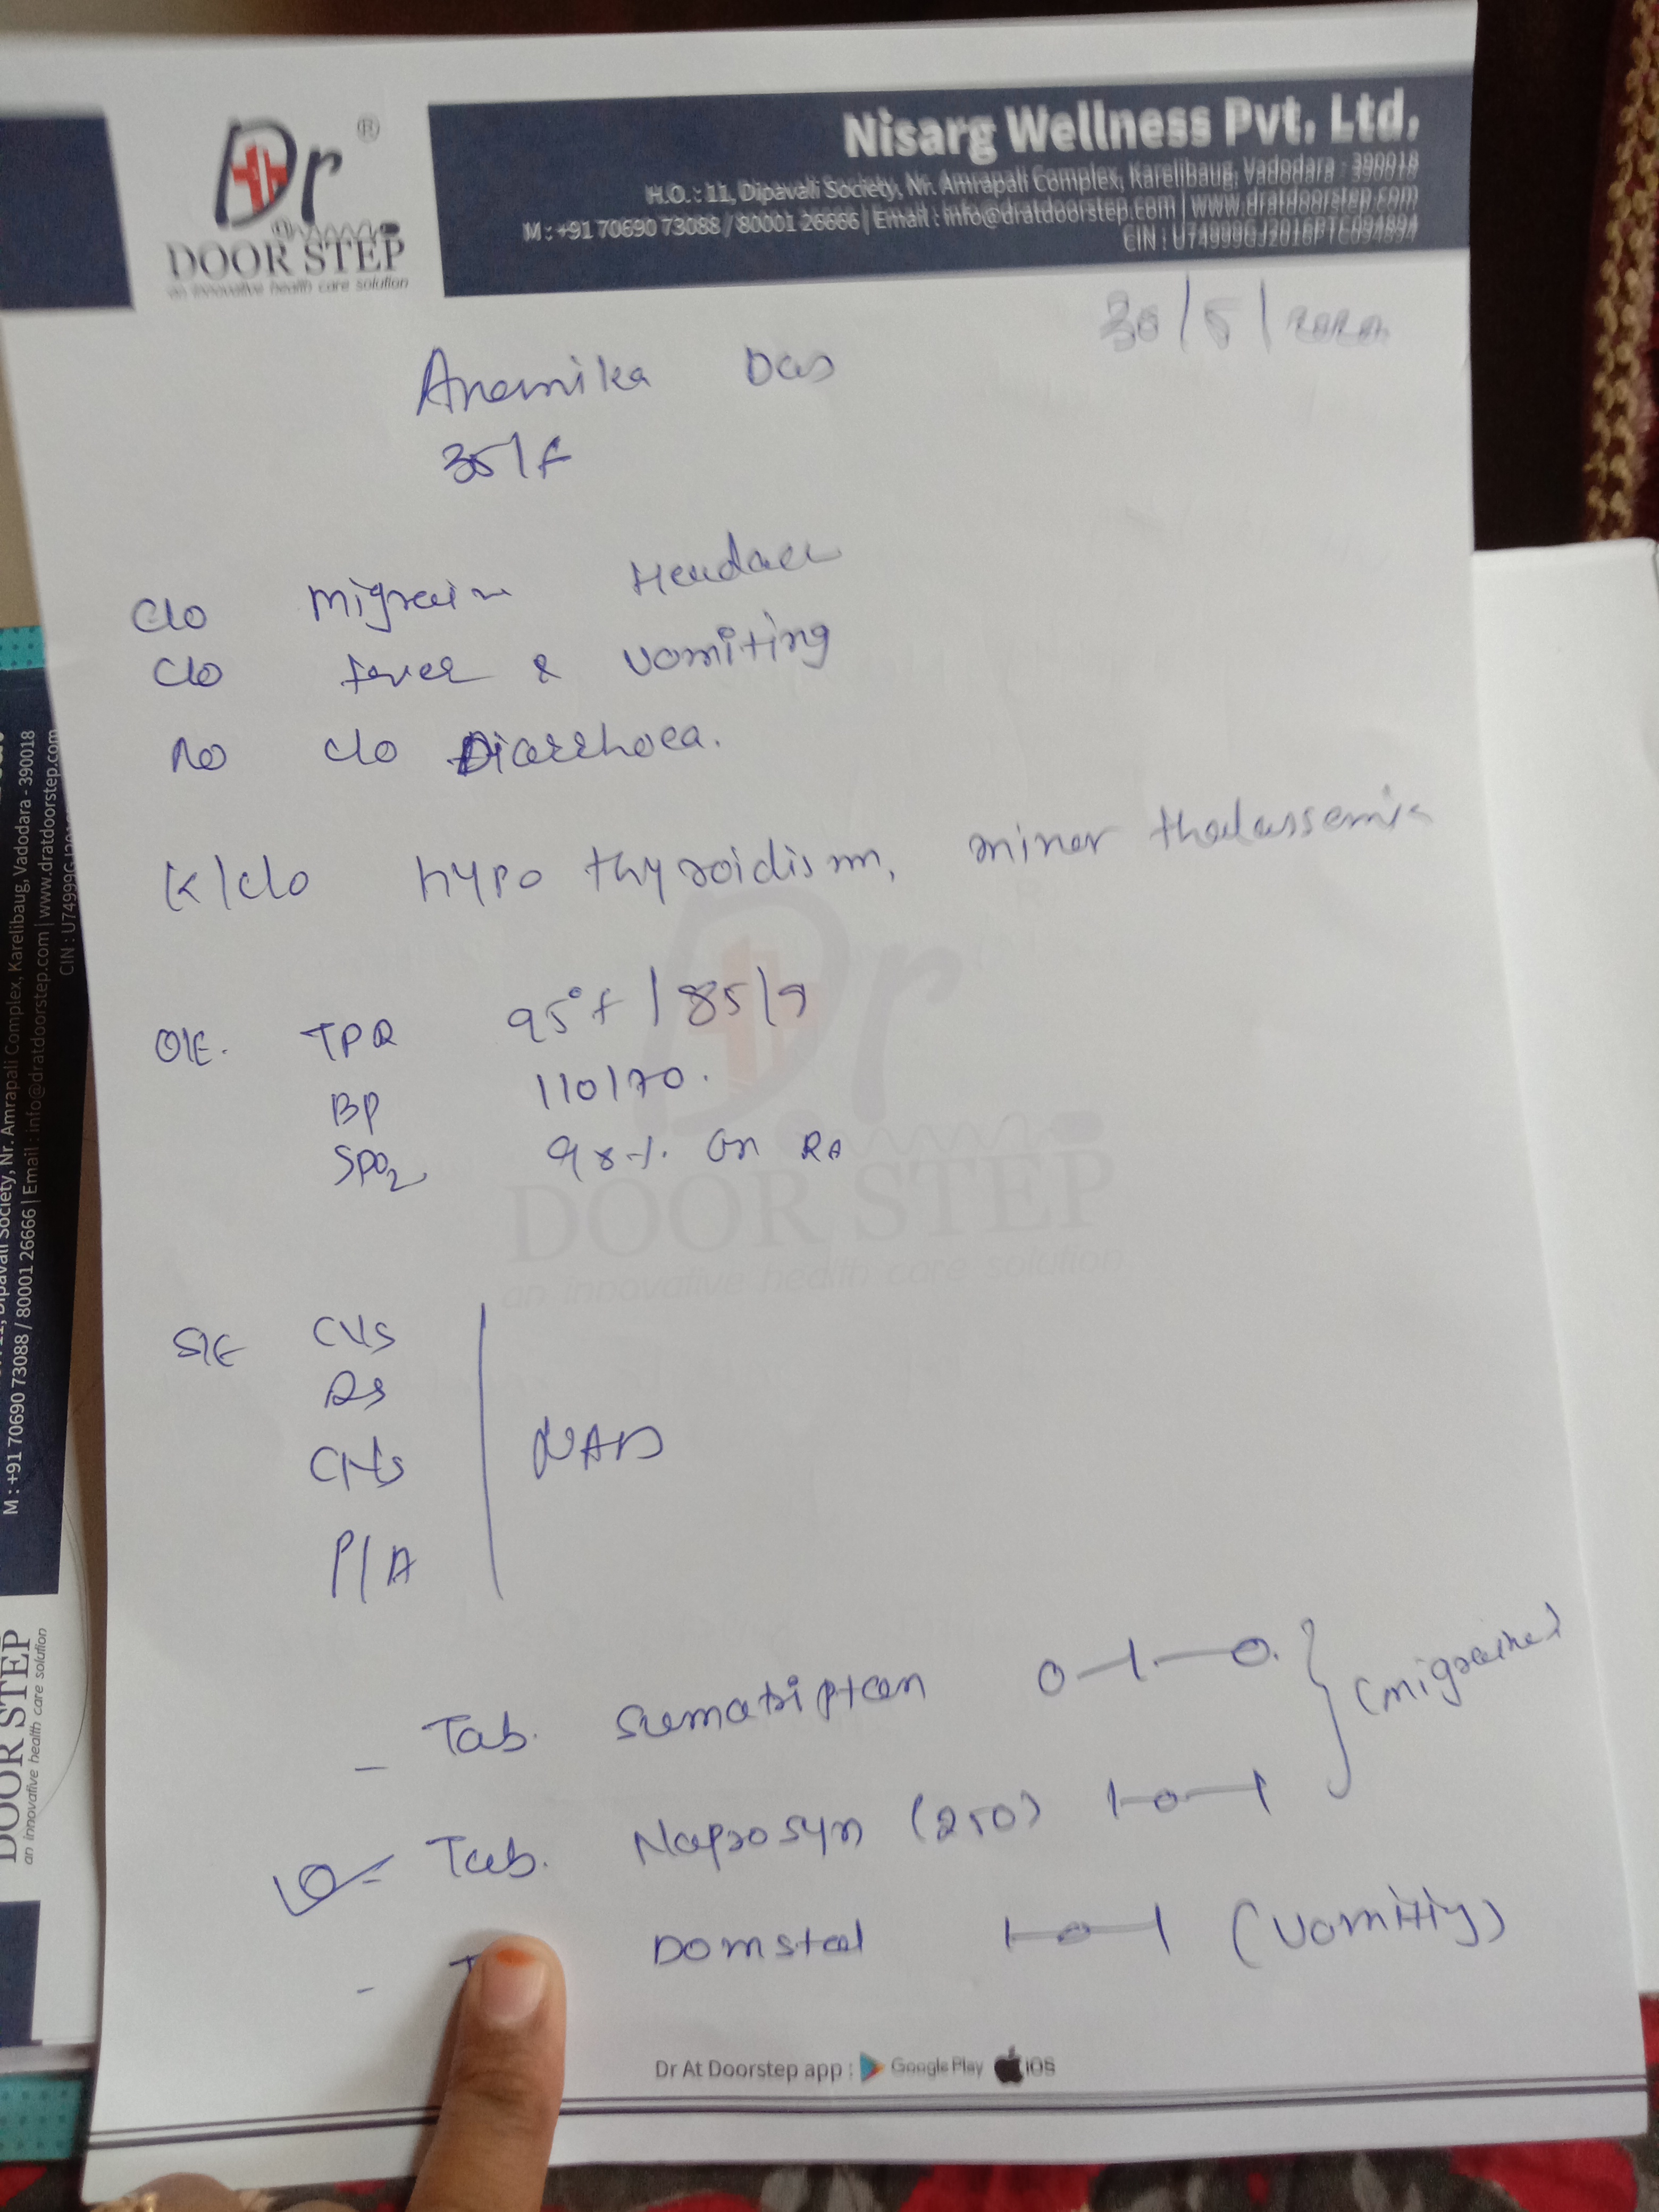 Dr ®
@
DOOR STEP
an innovative health care solution
Nisarg Wellness Pvt. Ltd.
H.O. : 11, Dipavali Society, Nr. Amrapali Complex, Karelibaug, Vadodara - 390018
M : +91 70690 73088 / 80001 26666 | Email : info@dratdoorstep.com | www.dratdoorstep.com
CIN : U74999GJ2016PTC094894
30/5/
Anamika Das
35/F
C/o Migrain Headace
C/o fever & vomiting
No C/o Diarrhoea.
K/C/o hypo thyroidism, minor thalassemia
O/E. TPR 95°f / 85/9
BP 110/70.
SPO2 98% on RA
S/E CVS
RS
CNS NAD
P/A
- Tab. Sumatriptan 0-1-0. } (migraine)
- Tab. Naprosyn (250) 1-0-1
- T Domstal 1-0-1 (Vomiting)
Dr At Doorstep app : Google Play iOS
Dr
DOOR STEP
an innovative health care solution
Society, Nr. Amrapali Complex, Karelibaug, Vadodara - 390018
M : +91 70690 73088 / 80001 26666 | Email : info@dratdoorstep.com | www.dratdoorstep.com
DOOR STEP
an innovative health care solution